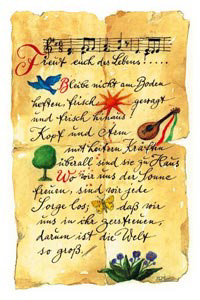 Freut euch des Lebens.....
Bleibe nicht am Boden
heften, frisch gewagt
und frisch hinaus
Kopf und Arm
mit heitern Kräften
überall sind sie zu Haus
Wo wir uns der Sonne
freuen, sind wir jede
Sorge los; daß wir
uns in ihr zerstreuen,
darum ist die Welt
so groß.